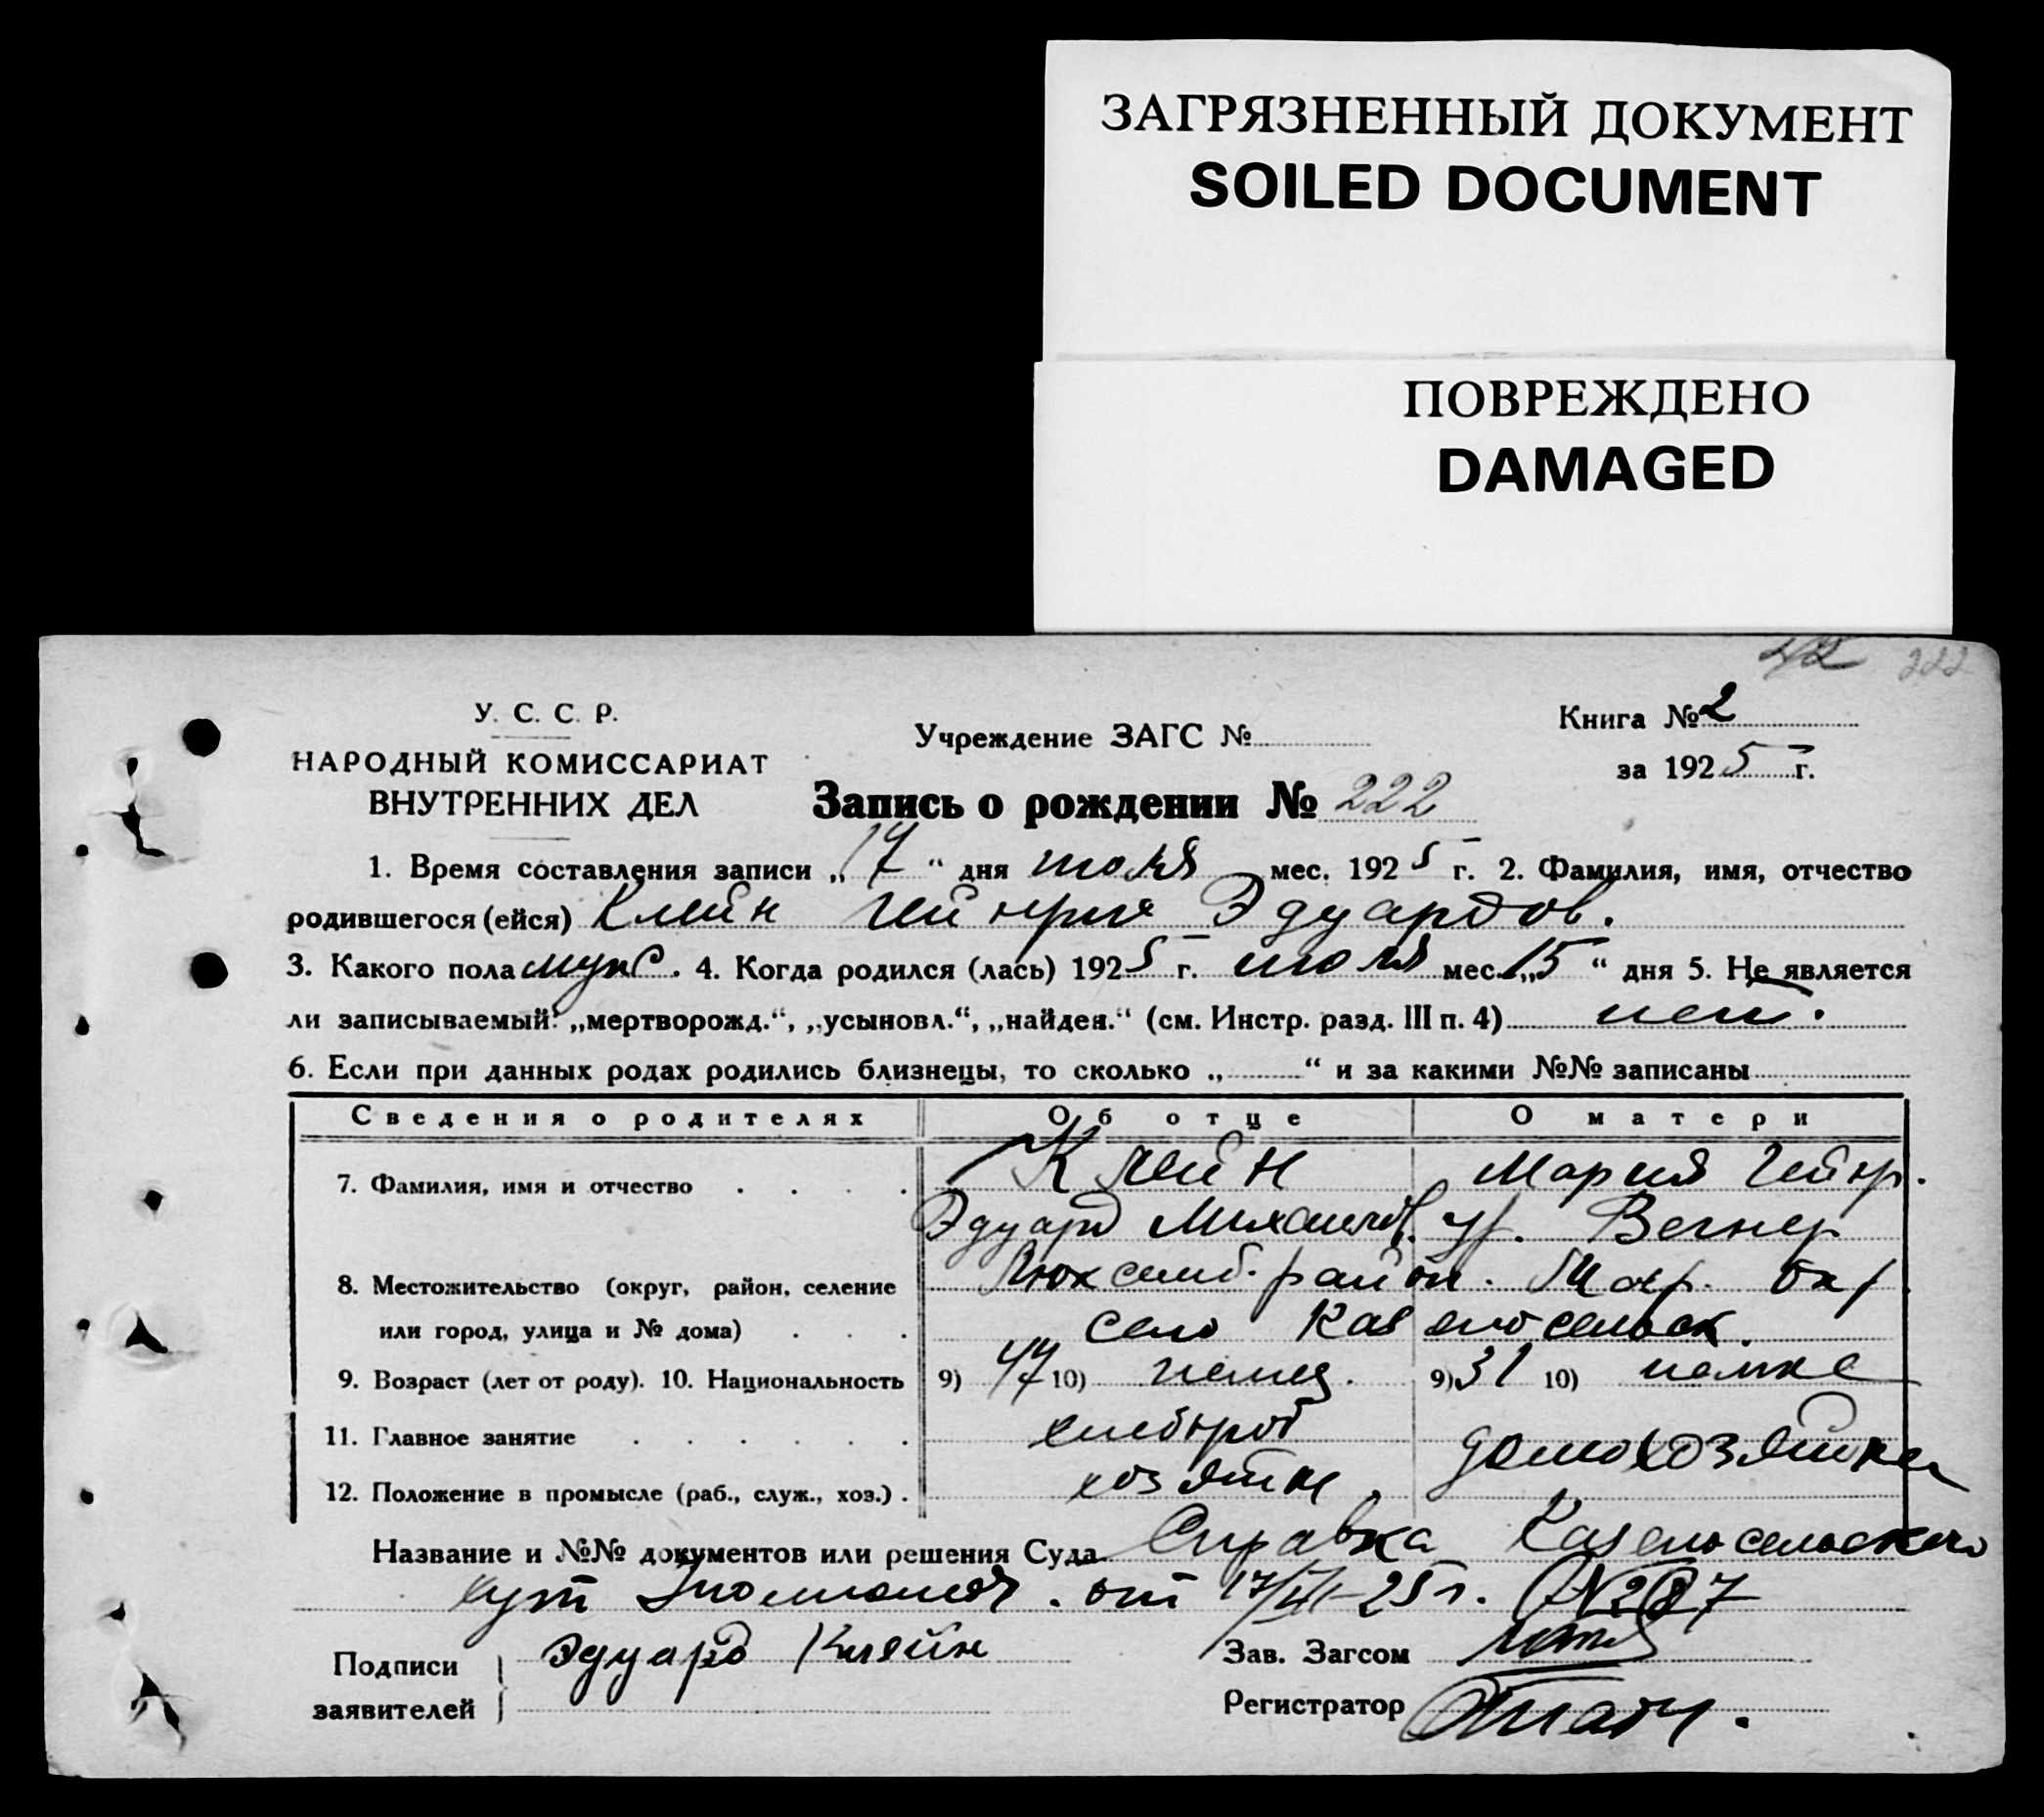 ЗАГРЯЗНЕННЫЙ ДОКУМЕНТ
SOILED DOCUMENT
ПОВРЕЖДЕНО
DAMAGED
222
У. С. С. Р.
НАРОДНЫЙ КОМИССАРИАТ
ВНУТРЕННИХ ДЕЛ
Учреждение ЗАГС №
Книга № 2
за 1925 г.
Запись о рождении № 222
1. Время составления записи „17“ дня июля мес. 1925 г. 2. Фамилия, имя, отчество
родившегося (ейся) Клейн Гейнрих Эдуардов.
3. Какого пола муж. 4. Когда родился (лась) 1925 г. июля мес. „15“ дня 5. Не является
ли записываемый: „мертворожд.“, „усыновл.“, „найден.“ (см. Инстр. разд. III п. 4) нет.
6. Если при данных родах родились близнецы, то сколько „ “ и за какими №№ записаны
Сведения о родителях Об отце О матери
7. Фамилия, имя и отчество Клейн Мария Гейнр.
Эдуард Михайлов. ур. Вегнер
8. Местожительство (округ, район, селение Люксемб. район. Мар. окр.
или город, улица и № дома) село
9. Возраст (лет от роду). 10. Национальность 9) 47 10) немец. 9) 31 10) немка
11. Главное занятие хлебороб домохозяйка
12. Положение в промысле (раб., служ., хоз.) хозяин
Название и №№ документов или решения Суда Справка
от 17/VII-25 г. №
Подписи заявителей Эдуард Кляйн
Зав. Загсом
Регистратор